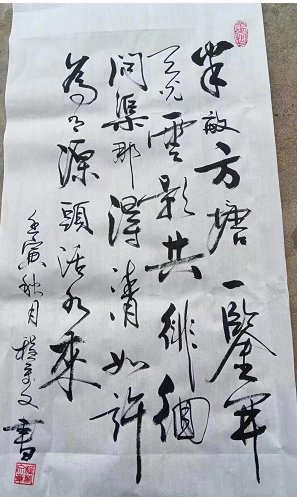 半畝方塘一鑒開
天光雲影共徘徊
問渠那得清如許
為有源頭活水來
壬寅秋月 程文 書